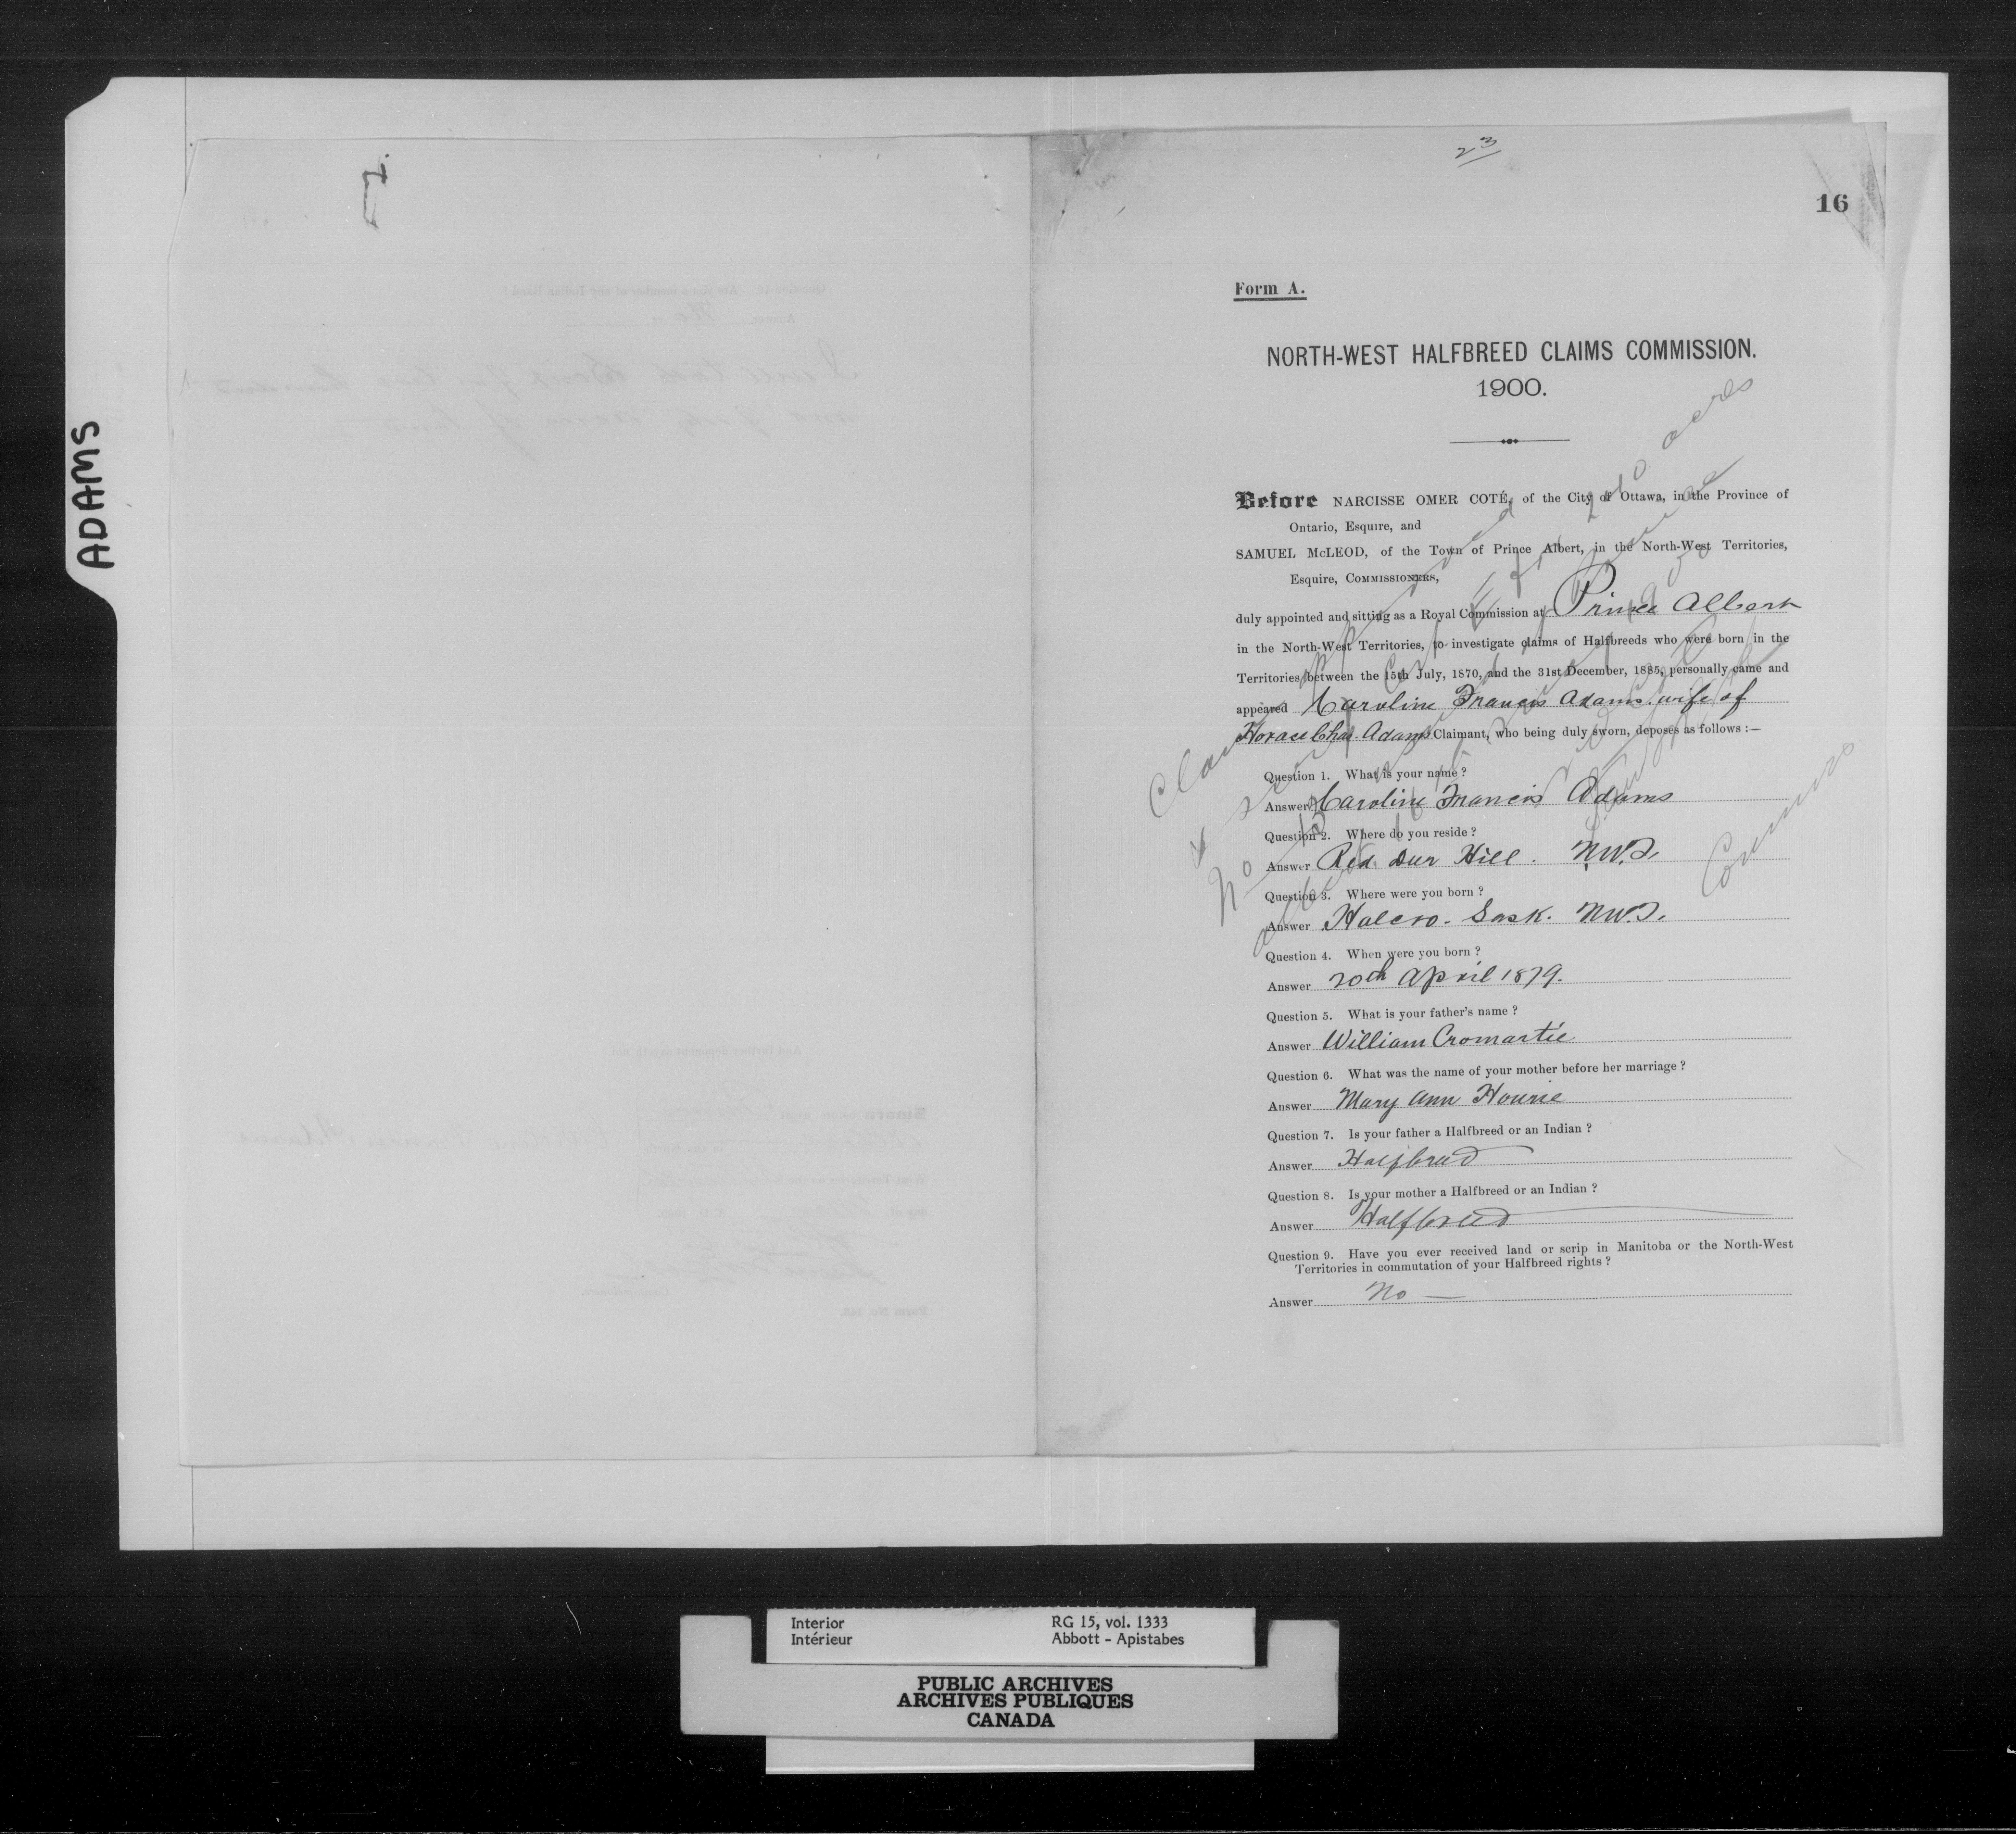 ADAMS
23
16
Form A.
NORTH-WEST HALFBREED CLAIMS COMMISSION.
1900.
Before NARCISSE OMER COTÉ, of the City of Ottawa, in the Province of
Ontario, Esquire, and
SAMUEL McLEOD, of the Town of Prince Albert, in the North-West Territories,
Esquire, COMMISSIONERS,
duly appointed and sitting as a Royal Commission at Prince Albert
in the North-West Territories, to investigate claims of Halfbreeds who were born in the
Territories between the 15th July, 1870, and the 31st December, 1885, personally came and
appeared Caroline Francis Adams wife of
Horace Chas. Adams Claimant, who being duly sworn, deposes as follows :—
Question 1. What is your name ?
Answer Caroline Francis Adams
Question 2. Where do you reside ?
Answer Red Deer Hill. N.W.T.
Question 3. Where were you born ?
Answer Halcro. Sask. N.W.T.
Question 4. When were you born ?
Answer 20th April 1879.
Question 5. What is your father's name ?
Answer William Cromartie
Question 6. What was the name of your mother before her marriage ?
Answer Mary Ann Hourie
Question 7. Is your father a Halfbreed or an Indian ?
Answer Halfbreed
Question 8. Is your mother a Halfbreed or an Indian ?
Answer Halfbreed
Question 9. Have you ever received land or scrip in Manitoba or the North-West
Territories in commutation of your Halfbreed rights ?
Answer No —
240 acres
Interior RG 15, vol. 1333
Intérieur Abbott - Apistabes
PUBLIC ARCHIVES
ARCHIVES PUBLIQUES
CANADA